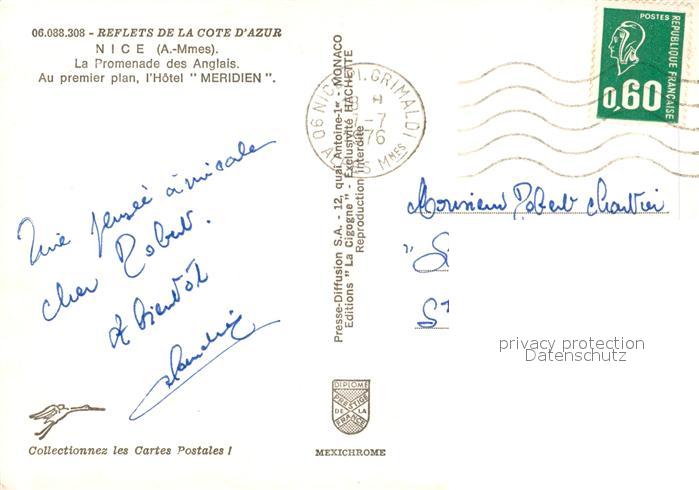 06.088.308 - REFLETS DE LA COTE D'AZUR
NICE (A.-Mmes).
La Promenade des Anglais.
Au premier plan, l'Hôtel " MERIDIEN ".
Une pensée amicale
cher Robert.
A bientôt
Collectionnez les Cartes Postales !
Presse-Diffusion S.A. - 12, quai Antoine-1er - MONACO
Editions " La Cigogne " - Exclusivité HACHETTE
Reproduction interdite
DIPLOME
PRESTIGE
DE LA
FRANCE
MEXICHROME
06 NICE GRIMALDI
-7
76
Mmes
POSTES
REPUBLIQUE FRANÇAISE
0,60
Monsieur Robert
privacy protection
Datenschutz